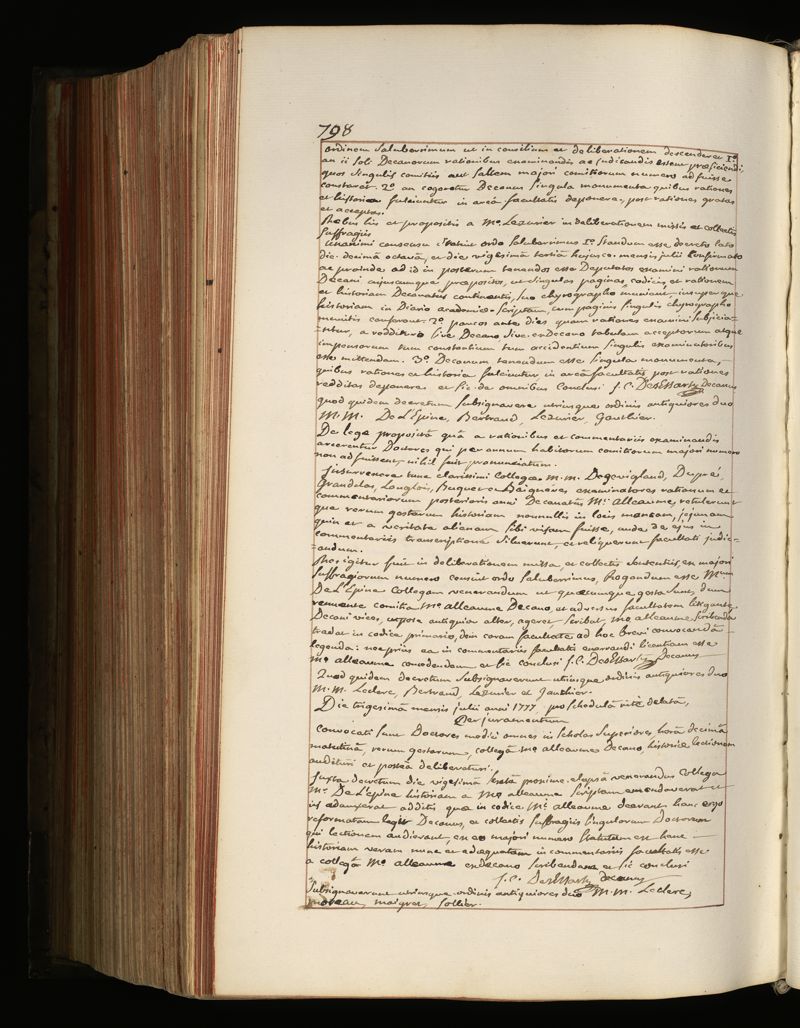 798
ordinem Saluberrimum ut in consilium et deliberationem descenderet 1.º
an ii soli Decanorum rationibus examinandis ac judicandis essent præficiendi,
quos Singulis comitiis aut Saltem majori comitiorum numero adfuisse
constaret. 2.º an cogeretur Decanus Singula monumenta quibus rationes
et historia fulciuntur in arcâ facultatis deponere, post rationes gratas
et acceptas.
Rebus his et propositis a Mº. Lezurier in deliberationem missis et collectis
Suffragiis
Unanimi consensu Statuit ordo Saluberrimus 1.º Standum esse decreto lato
die decimâ octavâ, et die vigesimâ tertiâ hujusce mensis julii confirmato
ac proinde ad id in posterum tenendos esse Deputatos examini rationum
Decani cujuscunque præpositos, ut Singulas paginas codicis et rationem
et historiam Decanatus continentis, suo chyrographo muniant, insuper que
historiam in Diario academico Scriptam, cum paginis singulis chyrographo
munitis conferant. 2.º paucos ante dies quam rationes examini subjicia-
-ntur, a reddituro sive Decano sive exdecano tabulam acceptorum atque
impensorum tum constantium tum accidentium Singulis examinatoribus
esse mittendam. 3.º Decanum tenendum esse Singula monumenta,
quibus rationes et historia fulciuntur in arcâ facultatis post rationes
redditas deponere et sic de omnibus conclusi J. C. Desessartz Decanus
quod quidem decretum Subsignavere utriusque ordinis antiquiores duo
M. M. De L'Epine, Bertrand, Lezurier, Gauthier.
De lege propositâ quâ a rationibus et commentariis examinandis
arcerentur Doctores qui per annum habitorum comitiorum majori numero
non adfuissent, nihil fuit pronunciatum.
Intervenere tunc clarissimi Collegæ M. M. Degevigland, Dupré,
Grandclas, Langlois, Buquet et Baigneres examinatores rationum et
commentariorum posterioris anni Decanatus Mi. alleaume, retulerunt
que rerum gestarum historiam nonnullis in locis mancam, jejunam
quin et a veritate alienam Sibi visam fuisse, unde de ejus in
commentariis transcriptione Siluerunt, et reliquerunt facultati judic-
-andum.
Res igitur fuit in deliberationem missa, et collectis Sententiis, ex majori
Suffragiorum numero censuit ordo Saluberrimus, Rogandum esse Mum
De L'Epine Collegam venerandum ut quæcumque gesta sunt, dum
renuente comitia Mº. alleaume Decano, et adversus facultatem litigante
Decani vices, utpote antiquior alter, ageret Scribat, Mo alleaume Scribenda
tradat in codice primario, dein coram facultate ad hoc brevi convocandâ
legenda: nec prius ea in commentariis facultatis enarrandi licentiam esse
Mo alleaume concedendam et sic conclusi J. C. Desessartz Decanus
Quod quidem decretum Subsignaverunt utriusque ordinis antiquiores duo
M. M. Leclerc, Bertrand, Lezurier et Gauthier.
Die trigesimâ mensis julii anni 1777, per schedulam ritè delatam,
Per juramentum
Convocati sunt Doctores medici omnes in Scholas Superiores, horâ decimâ
matutinâ, rerum gestarum, collegâ Mo alleaume Decano, historiæ lectionem
audituri et posteà deliberaturi.
Juxta decretum die vigesimâ Sextâ proxime elapsâ venerandus Collega
Mr. De L'Epine historiam a Mo alleaume Scriptam emendaverat et
iis adauxerat additis quæ in codice Mi. alleaume deerant. hanc ergo
reformatam legit Decanus, et collectis Suffragiis Singulorum Doctorum
qui lectionem audierant, ex eo majori numero Statutum est hanc
historiam veram nunc et adæquatam in commentariis facultatis esse
a collegâ Mo alleaume exdecano Scribendam et sic conclusi
J. C. Desessartz decanus
Subsignaverunt utriusque ordinis antiquiores duo M. M. Leclerc,
moreau, maigret, Sollier.